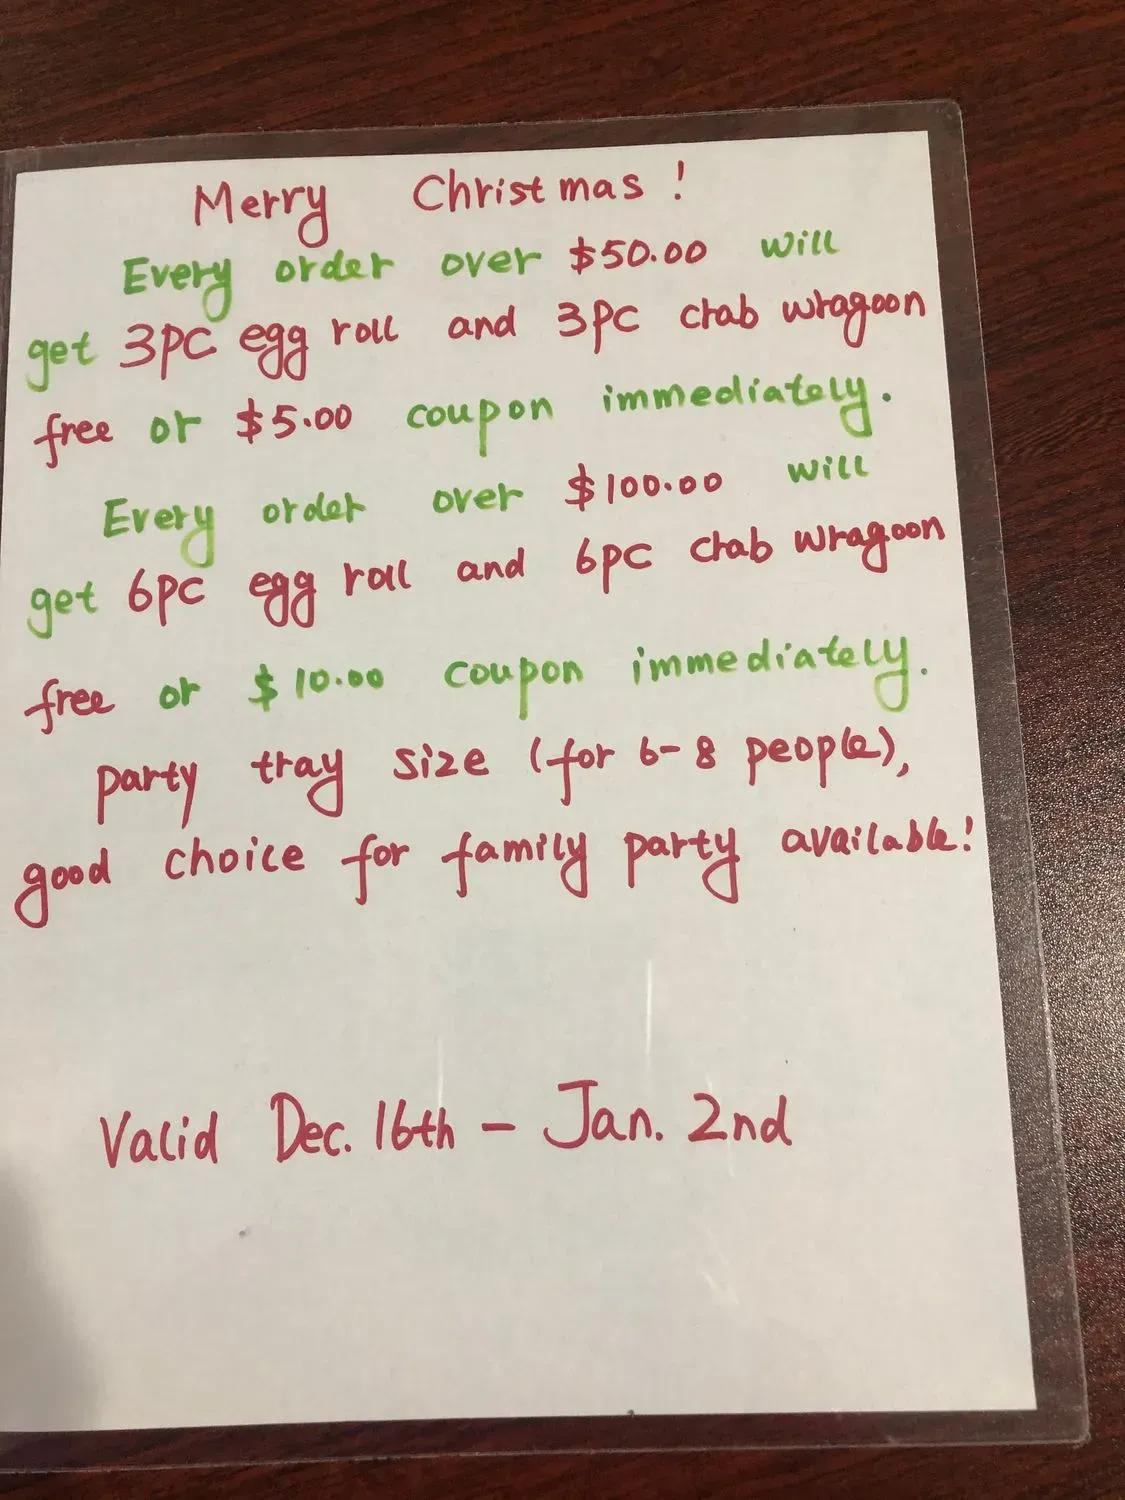 Merry Christmas!
Every order over $50.00 will
get 3pc egg roll and 3pc crab wragoon
free or $5.00 coupon immediately.
Every order over $100.00 will
get 6pc egg roll and 6pc crab wragoon
free or $10.00 coupon immediately.
party tray size (for 6-8 people),
good choice for family party available!
Valid Dec. 16th - Jan. 2nd